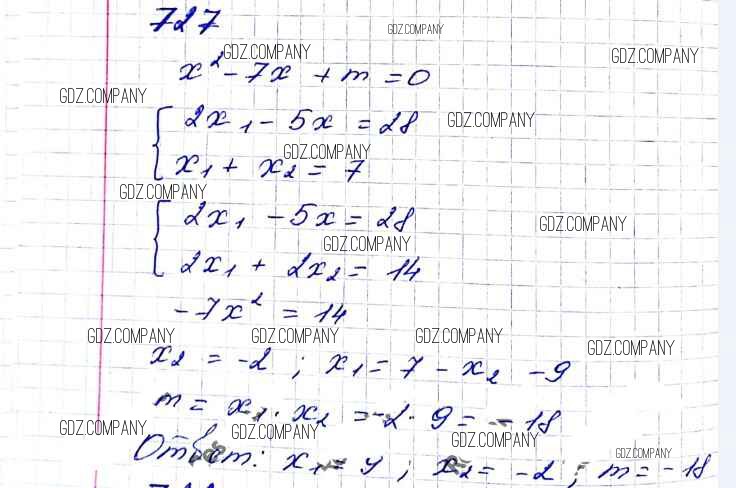 727
GDZ.COMPANY
x² - 7x + m = 0
GDZ.COMPANY
GDZ.COMPANY
GDZ.COMPANY
{ 2x₁ - 5x = 28
GDZ.COMPANY
x₁ + x₂ = 7
GDZ.COMPANY
GDZ.COMPANY
{ 2x₁ - 5x = 28
GDZ.COMPANY
GDZ.COMPANY
2x₁ + 2x₂ = 14
-7x² = 14
GDZ.COMPANY GDZ.COMPANY GDZ.COMPANY GDZ.COMPANY
x₂ = -2 ; x₁ = 7 - x₂ - 9
m = x₁ · x₂ = -2 · 9 = -18
GDZ.COMPANY GDZ.COMPANY GDZ.COMPANY GDZ.COMPANY
Ответ: x₁ = 9 ; x₂ = -2 ; m = -18